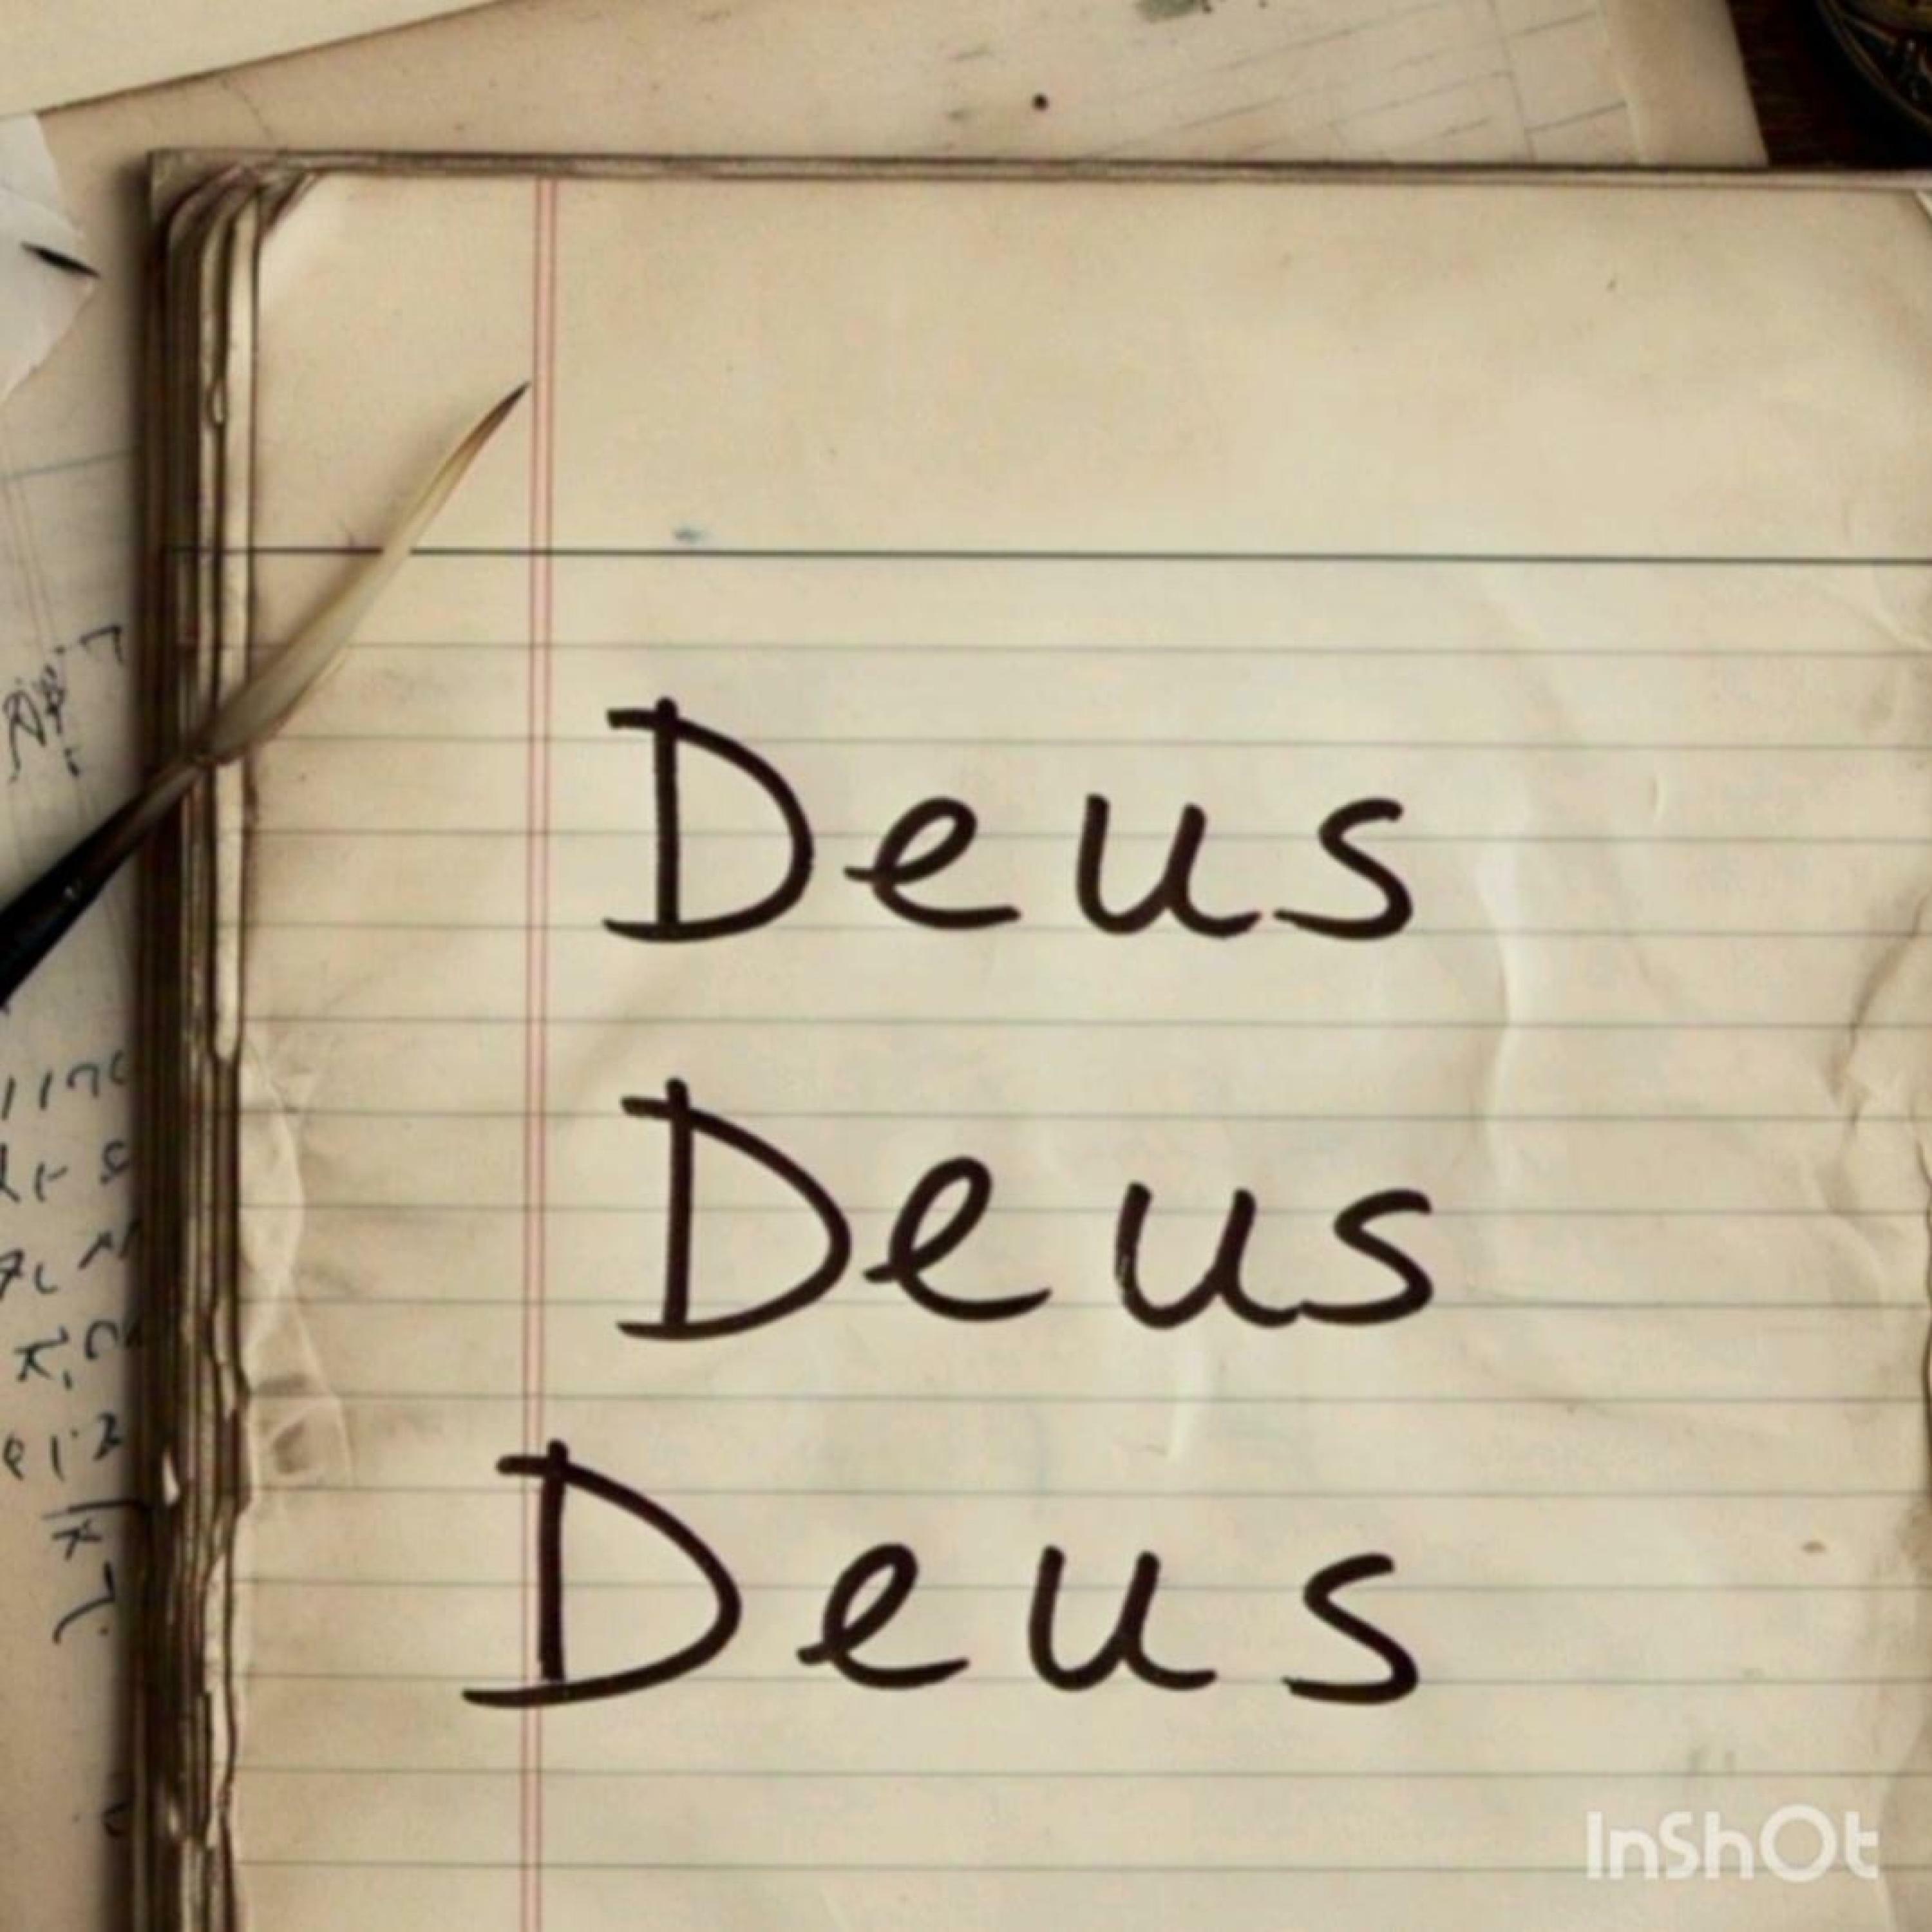 Deus
Deus
Deus
InShOt